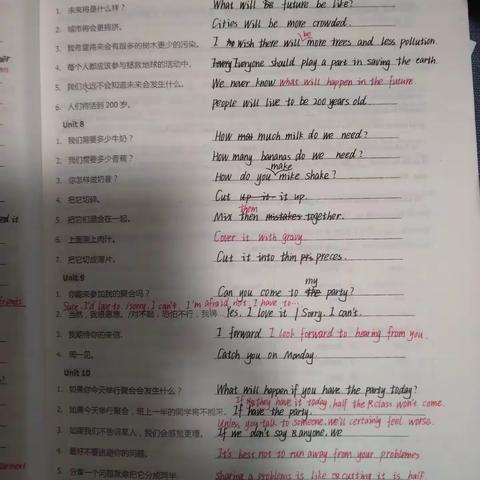 1. 未来将是什么样？ What will be future be like?
2. 城市将会更拥挤。 Cities will be more crowded.
be
3. 我希望将来会有跟多的树木更少的污染。 I wish there will more trees and less pollution.
4. 每个人都应该参与拯救地球的活动中。 Everyone should play a part in saving the earth.
5. 我们永远不会知道未来会发生什么。 We never know what will happen in the future.
6. 人们将活到 200 岁。 people will live to be 200 years old.
Unit 8
1. 我们需要多少牛奶？ How much milk do we need?
2. 我们需要多少香蕉？ How many bananas do we need?
make
3. 你怎样做奶昔？ How do you mike shake?
4. 把它切碎。 Cut up it it up.
them
5. 把它们混合在一起。 Mix then mistakes together.
6. 上面浇上肉汁。 Cover it with gravy.
7. 把它切成薄片。 Cut it into thin preces.
Unit 9
my
1. 你能来参加我的聚会吗？ Can you come to the party?
Sure, I'd love to. /sorry, I can't. I'm afraid not, I have to...
2. 当然，我很愿意。/对不起，恐怕不行，我得 Yes, I love it / Sorry, I can't.
3. 我期待你的来信。 I forward I look forward to hearing from you.
4. 周一见。 Catch you on Monday.
Unit 10
1. 如果你今天举行聚会会发生什么？ What will happen if you have the party today?
If they have it today, half the class won't come.
2. 如果今天举行聚会，班上一半的同学将不能来。 If have the party.
Unless you talk to someone, we'll certainly feel worse.
3. 如果我们不告诉某人，我们会感觉更糟。 If we don't say anyone, we
4. 最好不要逃避你的问题。 It's best not to run away from your problemes.
5. 分享一个问题就像把它分成两半。 sharing a problems is like cutting it is half